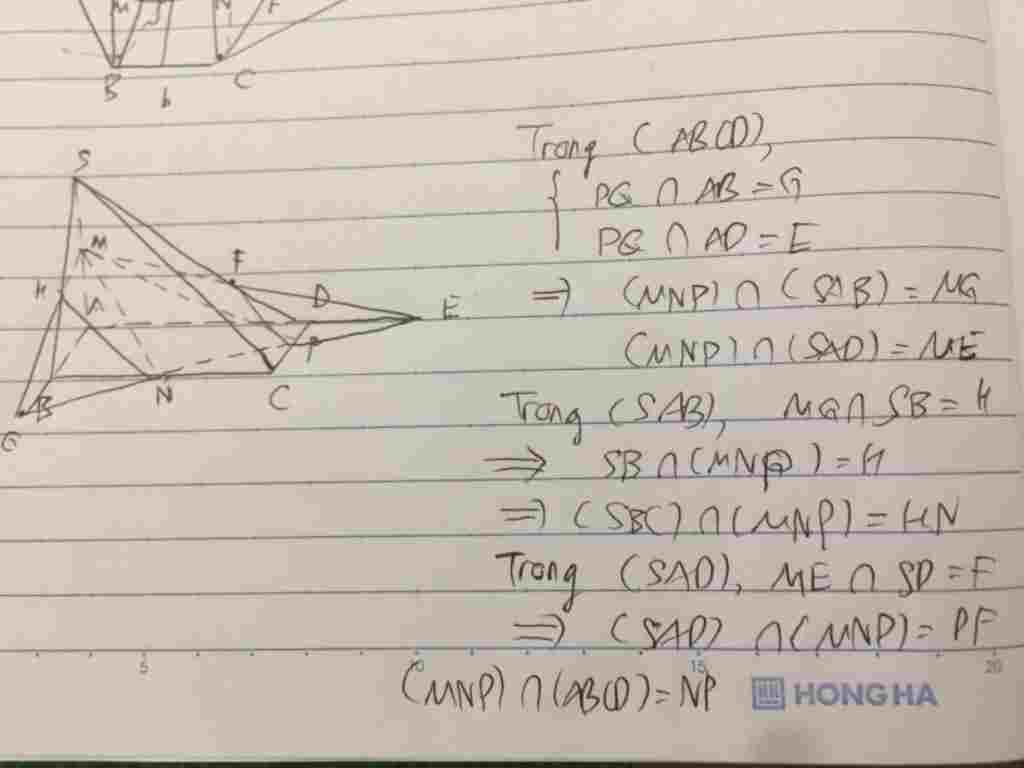 M N F
B b C
S
M
F
H A D E
P
B N C
G
Trong (ABCD),
PG ∩ AB = G
PG ∩ AD = E
=> (MNP) ∩ (SAB) = MG
(MNP) ∩ (SAD) = ME
Trong (SAB), MG ∩ SB = H
=> SB ∩ (MNP) = H
=> (SBC) ∩ (MNP) = HN
Trong (SAD), ME ∩ SD = F
=> (SAD) ∩ (MNP) = PF
(MNP) ∩ (ABCD) = NP
5 10 15 20
HONG HA